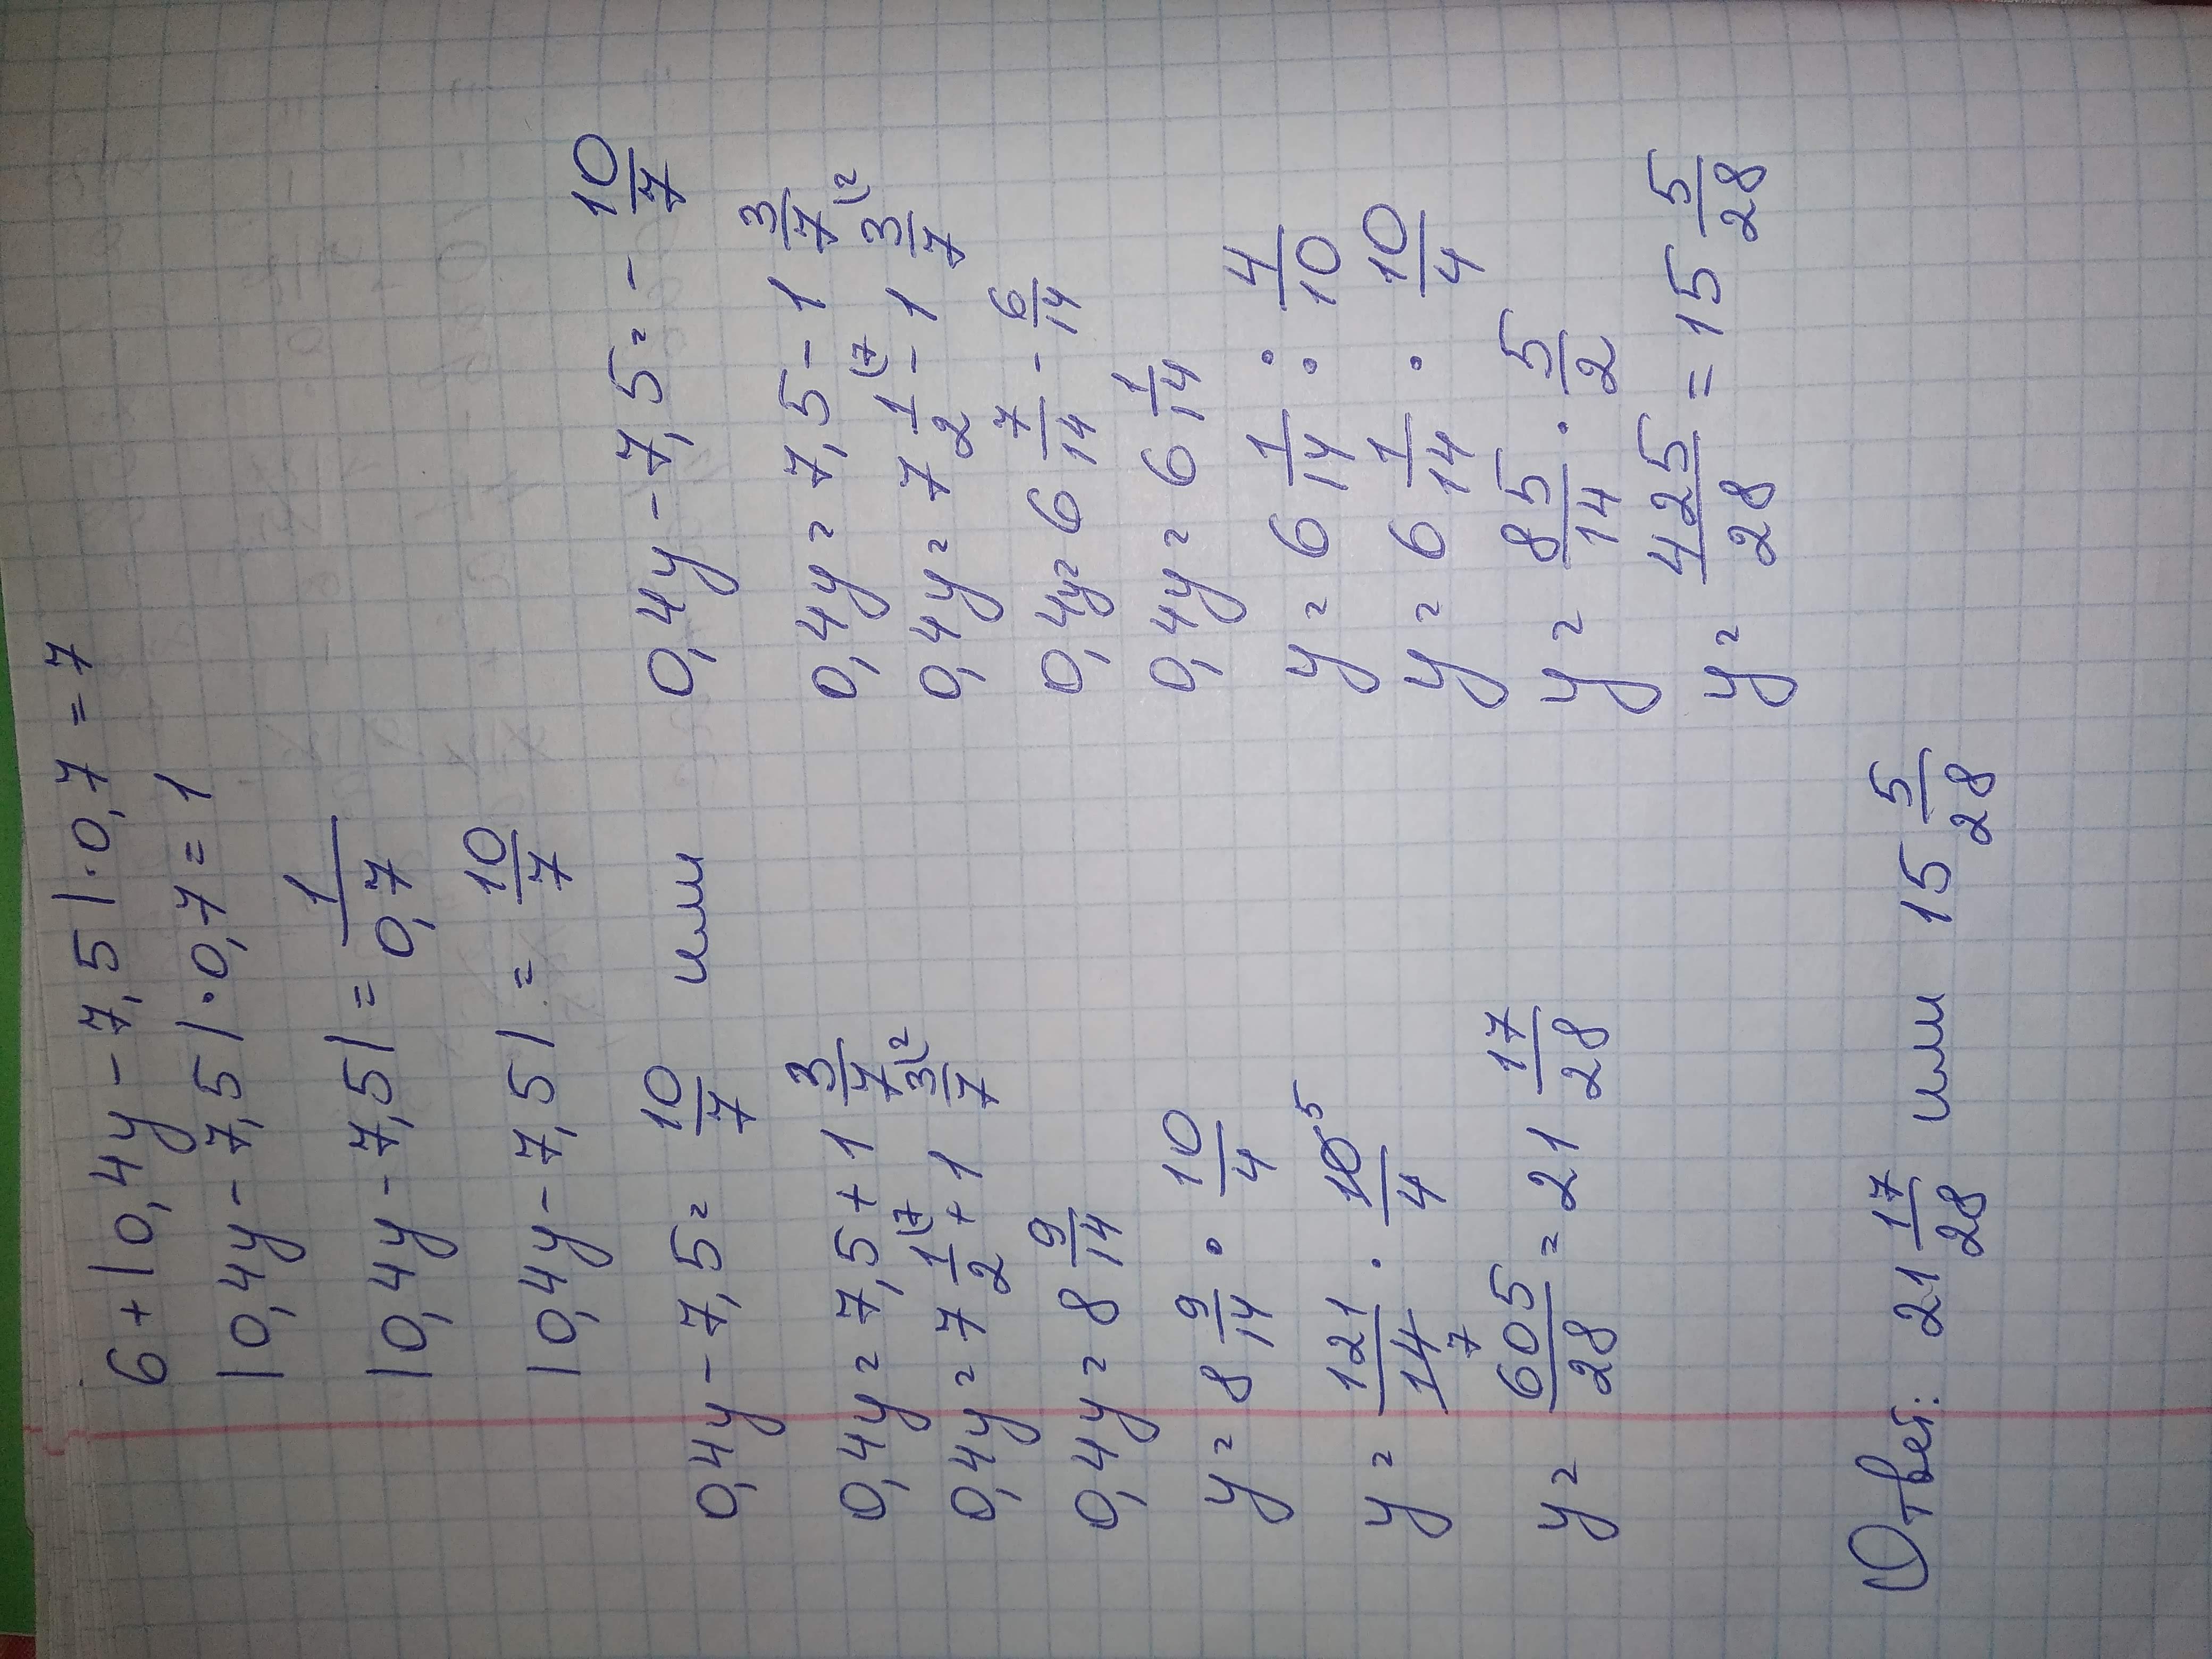 6 + |0,4y - 7,5| · 0,7 = 7
|0,4y - 7,5| · 0,7 = 1
|0,4y - 7,5| = 1/0,7
|0,4y - 7,5| = 10/7
0,4y - 7,5 = 10/7 или 0,4y - 7,5 = - 10/7
0,4y = 7,5 + 1 3/7
0,4y = 7 1/2 (7 + 1 3/7 (2
0,4y = 8 9/14
y = 8 9/14 · 10/4
y = 121/14 7 · 10 5/4
y = 605/28 = 21 17/28
0,4y = 7,5 - 1 3/7
0,4y = 7 1/2 (7 - 1 3/7 (2
0,4y = 6 7/14 - 6/14
0,4y = 6 1/14
y = 6 1/14 : 4/10
y = 6 1/14 · 10/4
y = 85/14 · 5/2
y = 425/28 = 15 5/28
Ответ: 21 17/28 или 15 5/28